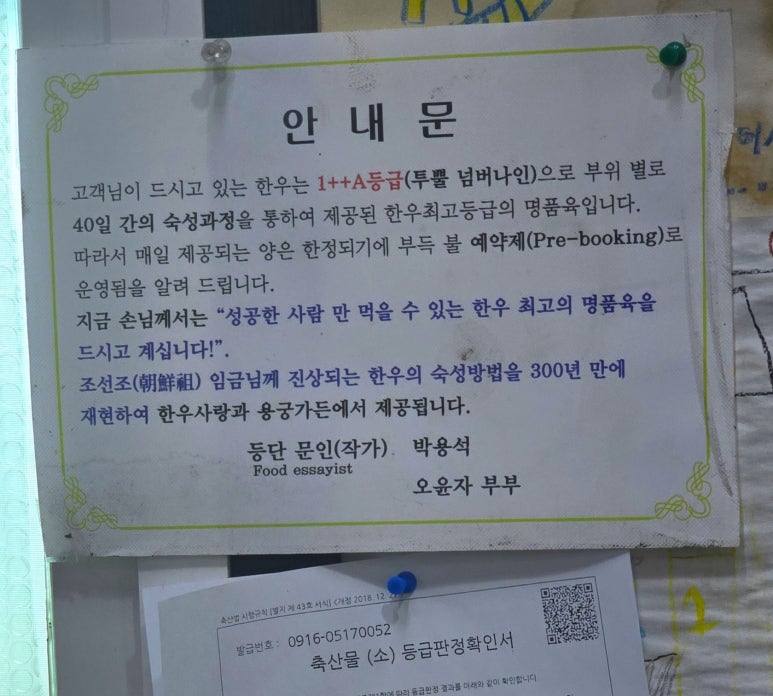 안 내 문
고객님이 드시고 있는 한우는 1++A등급(투뿔 넘버나인)으로 부위 별로
40일 간의 숙성과정을 통하여 제공된 한우최고등급의 명품육입니다.
따라서 매일 제공되는 양은 한정되기에 부득 불 예약제(Pre-booking)로
운영됨을 알려 드립니다.
지금 손님께서는 “성공한 사람 만 먹을 수 있는 한우 최고의 명품육을
드시고 계십니다!”.
조선조(朝鮮祖) 임금님께 진상되는 한우의 숙성방법을 300년 만에
재현하여 한우사랑과 용궁가든에서 제공됩니다.
등단 문인(작가) 박용석
Food essayist
오윤자 부부
축산법 시행규칙 [별지 제43호 서식] <개정 2018. 12.
발급번호 : 0916-05170052
축산물 (소) 등급판정확인서
따라 등급판정 결과를 아래와 같이 확인합니다.